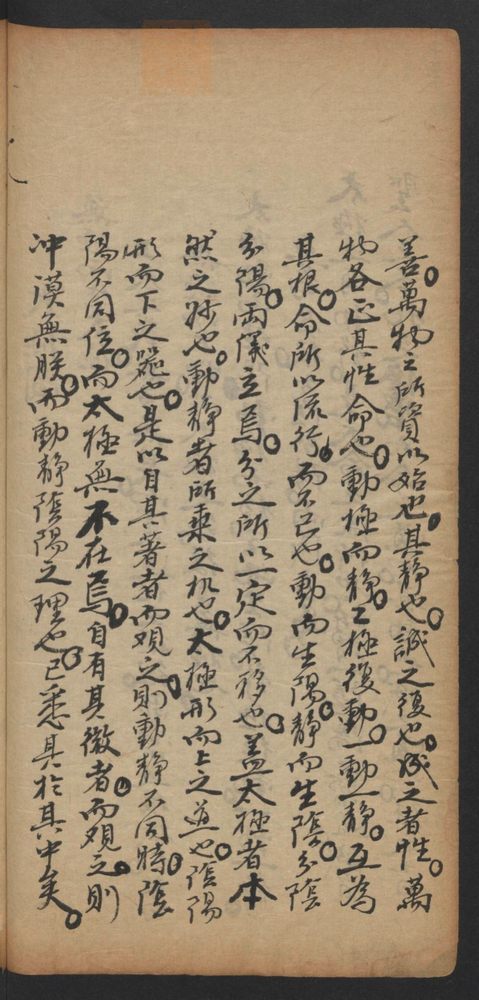 善。萬物之所資以始也。其靜也。誠之復也。成之者性。萬
物各正其性命也。動極而靜。々極復動。一動一靜。互為
其根。命所以流行。而不已也。動而生陽。靜而生陰。分陰
分陽。兩儀立焉。分之所以一定而不移也。盖太極者本
然之妙也。動靜者所乘之机也。太極形而上之道也。陰陽
形而下之器也。是以自其著者而观之。則動靜不同時。陰
陽不同位。而太極無不在焉。自有其微者。而观之。則
冲漠無朕。而動靜陰陽之理也。已悉具於其中矣。